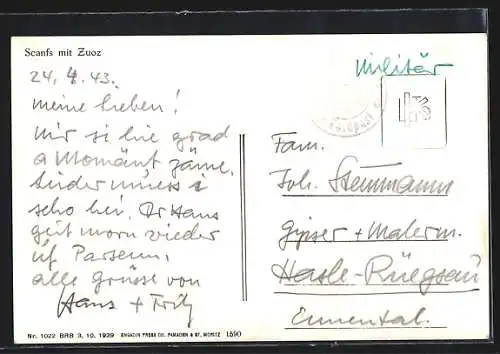 Scanfs mit Zuoz
24. 4. 43.
meine Lieben!
Mir si hie grad
a Momänt zäme.
Leider muess i
scho hei. Dr Hans
geit morn wieder
uf Parsenn.
alle Grüsse von
Hans + Fritz
Militär
Feldpost
Fam.
Joh. Steinmann
Gipser + Malerm.
Hasle-Rüegsau
Emmental.
Nr. 1022 BRB 3. 10. 1939
ENGADIN PRESS CO., SAMADEN & ST. MORITZ 1590